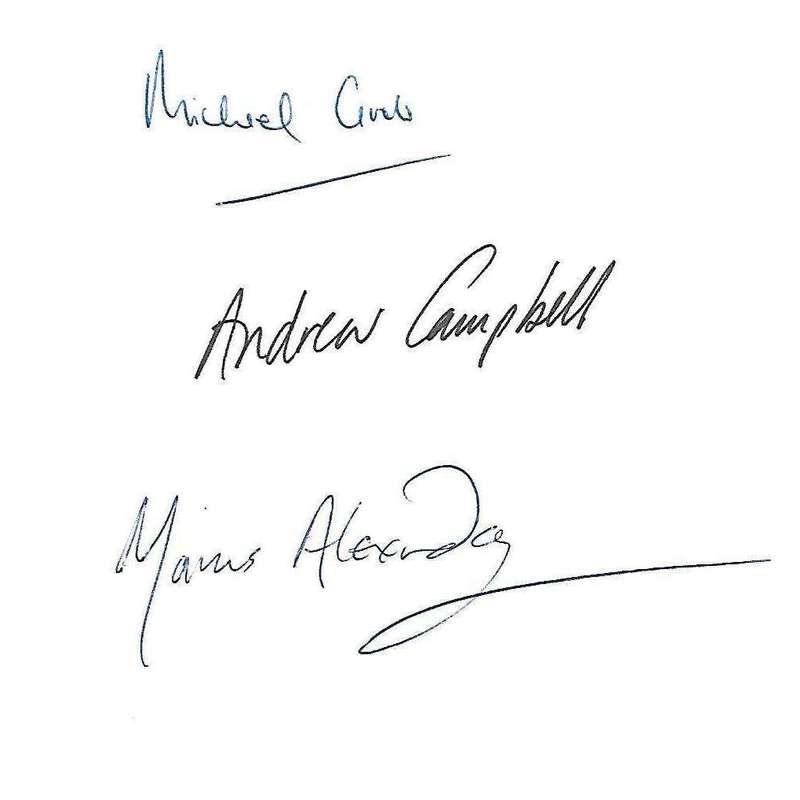 Michael
Andrew Campbell
Marius Alexander